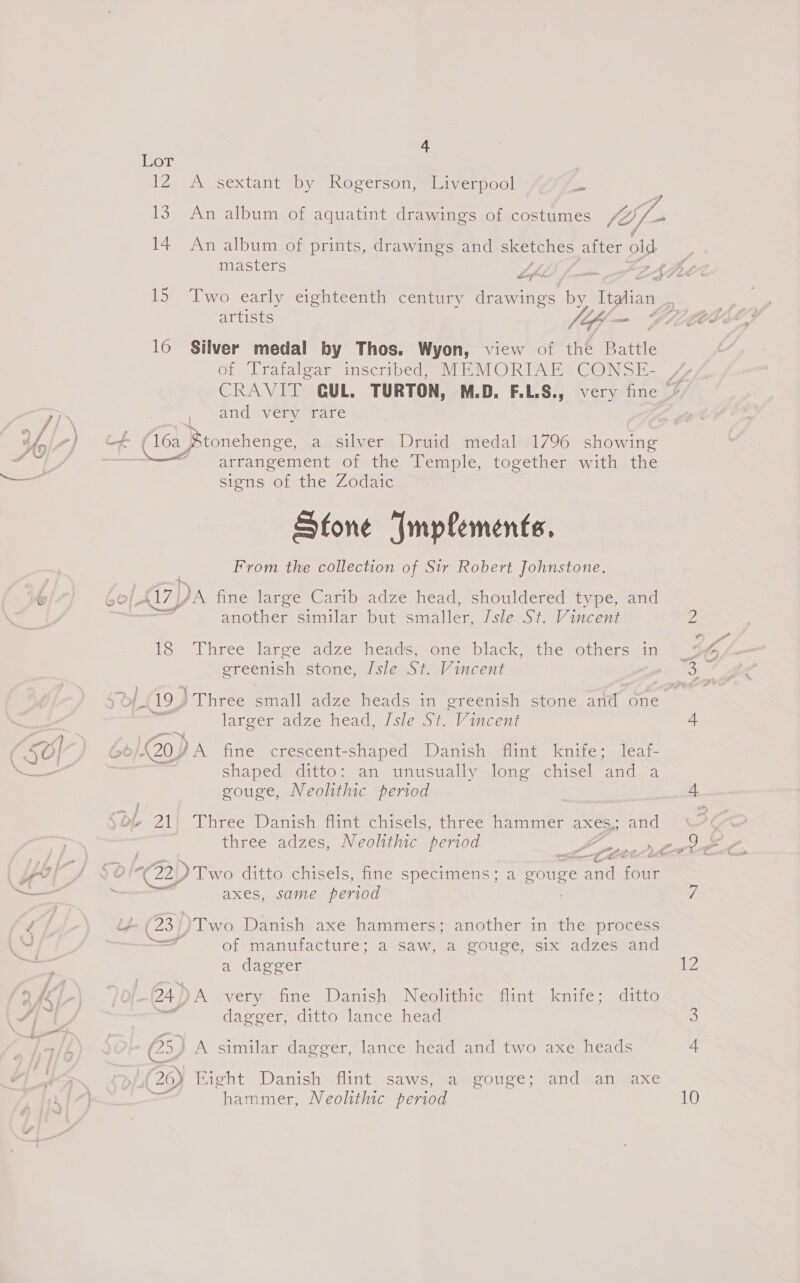 4
LOT
12 A sextant by Rogerson, Liverpool
13 An album of aquatint drawings of costumes
14 An album of prints, drawings and sketches after old
masters
15 Two early eighteenth century drawings by Italian
artists
16 Silver medal by Thos. Wyon, view of the Battle
of Trafalgar inscribed, MEMORIAE CONSE-
CRAVIT GUL. TURTON, M.D. F.L.S., very fine
and very rare
16a Stonehenge, a silver Druid medal 1796 showing
arrangement of the Temple, together with the
signs of the Zodaic
Stone Implements.
From the collection of Sir Robert Johnstone.
60/ 17 A fine large Carib adze head, shouldered type, and
another similar but smaller, Isle St. Vincent 2
18 Three large adze heads, one black, the others in
greenish stone, Isle St. Vincent 3
19 Three small adze heads in greenish stone and one
larger adze head, Isle St. Vincent 4
50/- 20 A fine crescent-shaped Danish flint knife; leaf-
shaped ditto: an unusually long chisel and a
gouge, Neolithic period 4
21 Three Danish flint chisels, three hammer axes; and
three adzes, Neolithic period 9
22 Two ditto chisels, fine specimens; a gouge and four
axes, same period 7
23 Two Danish axe hammers; another in the process
of manufacture; a saw, a gouge, six adzes and
a dagger 12
24 A very fine Danish Neolithic flint knife; ditto
dagger, ditto lance head 3
25 A similar dagger, lance head and two axe heads 4
26 Eight Danish flint saws, a gouge; and an axe
hammer, Neolithic period 10